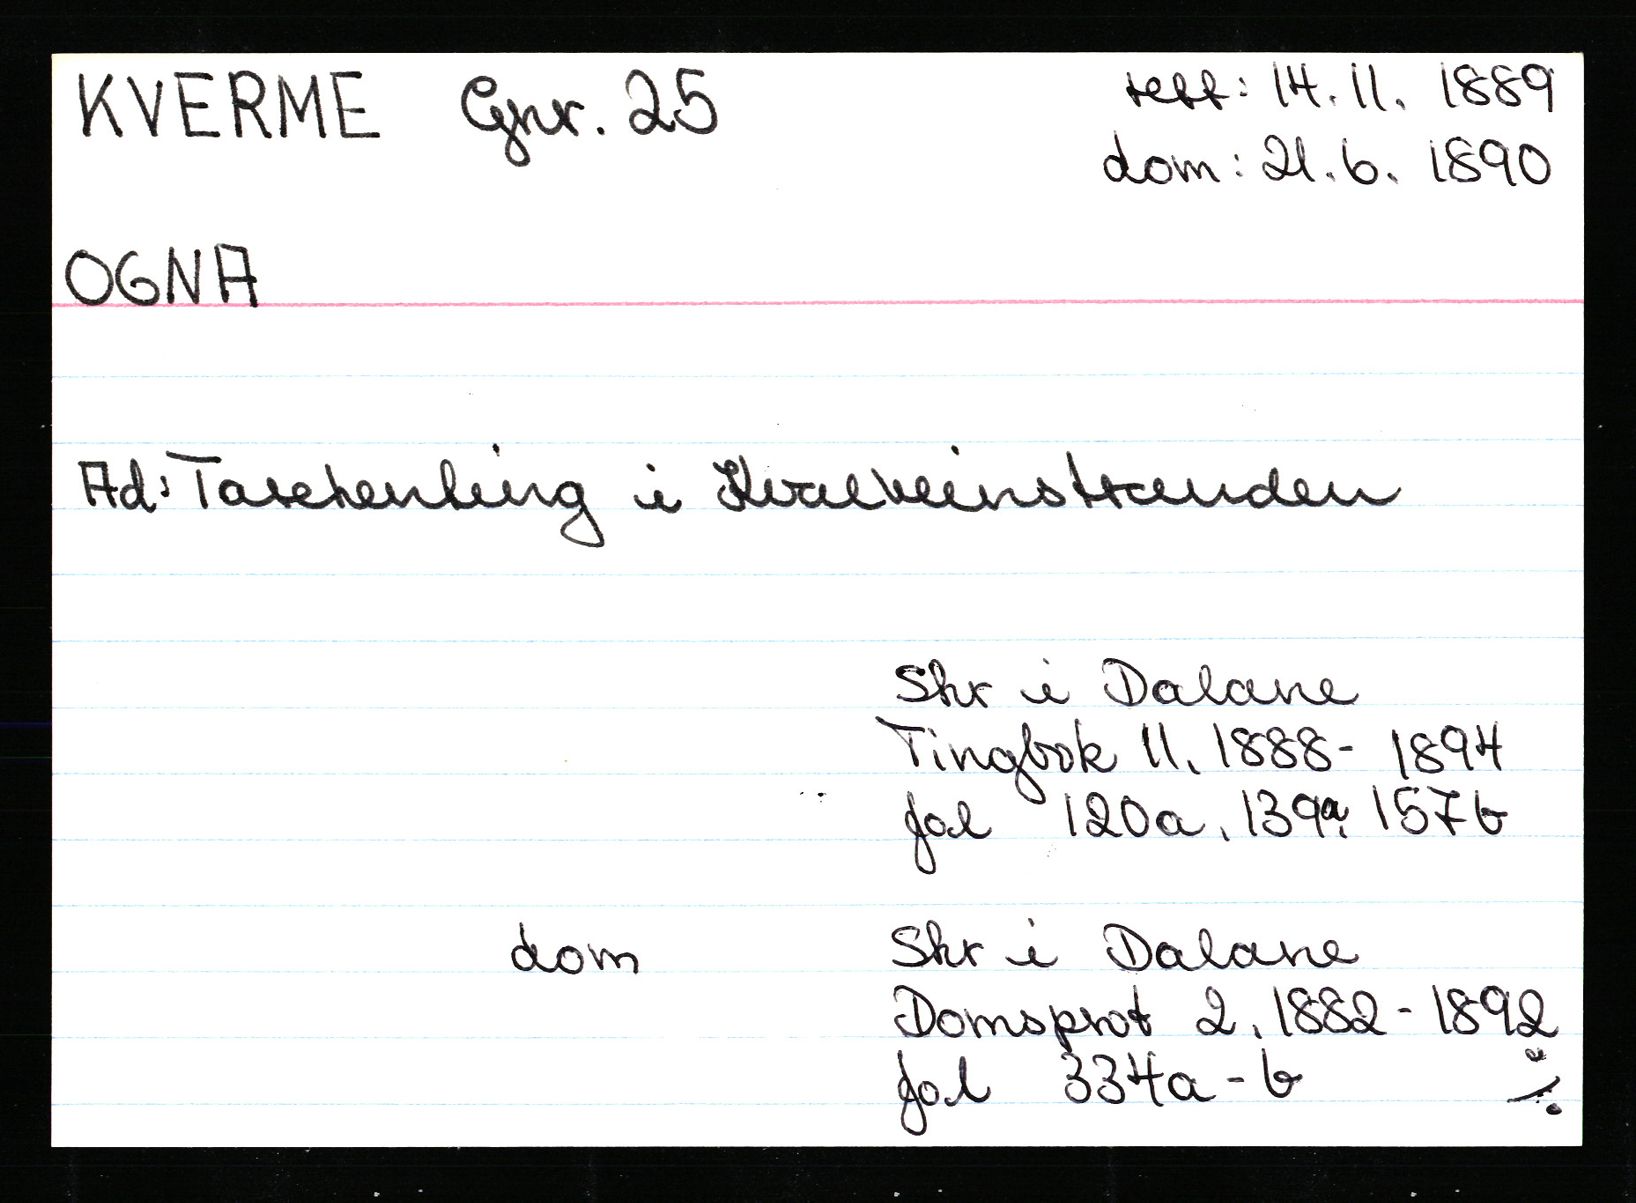 KVERME Gnr. 25
14.11. 1889
dom: 21.6. 1890
OGNA
Ad: Tarehenting i Kvalbeinstranden
Skr i Dalane
Tingbok 11, 1888- 1894
fol 120a, 139a, 157b
dom Skr i Dalane
Domsprot 2, 1882-1892
fol 334a-b